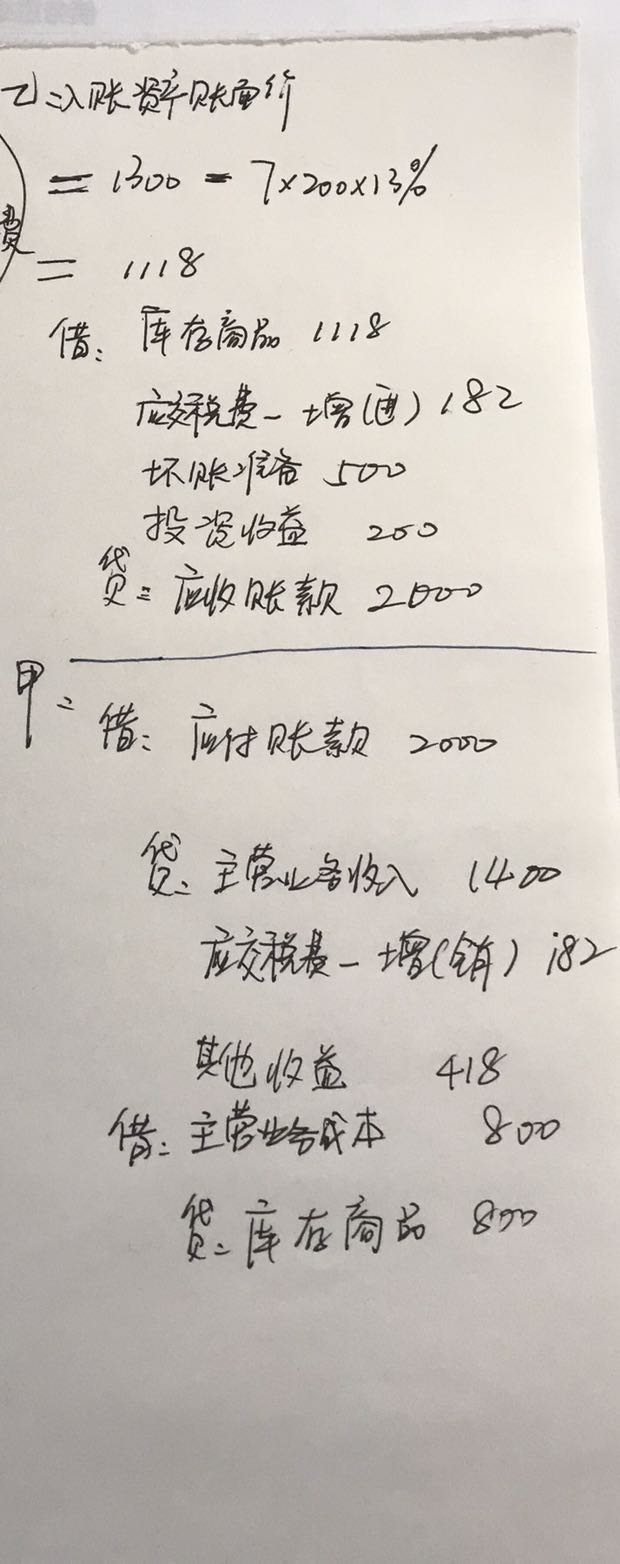 乙:入账资产账面价
费
= 1300 - 7×200×13%
= 1118
借: 库存商品 1118
应交税费-增(进) 182
坏账准备 500
投资收益 200
贷: 应收账款 2000
甲:
借: 应付账款 2000
贷: 主营业务收入 1400
应交税费-增(销) 182
其他收益 418
借: 主营业务成本 800
贷: 库存商品 800